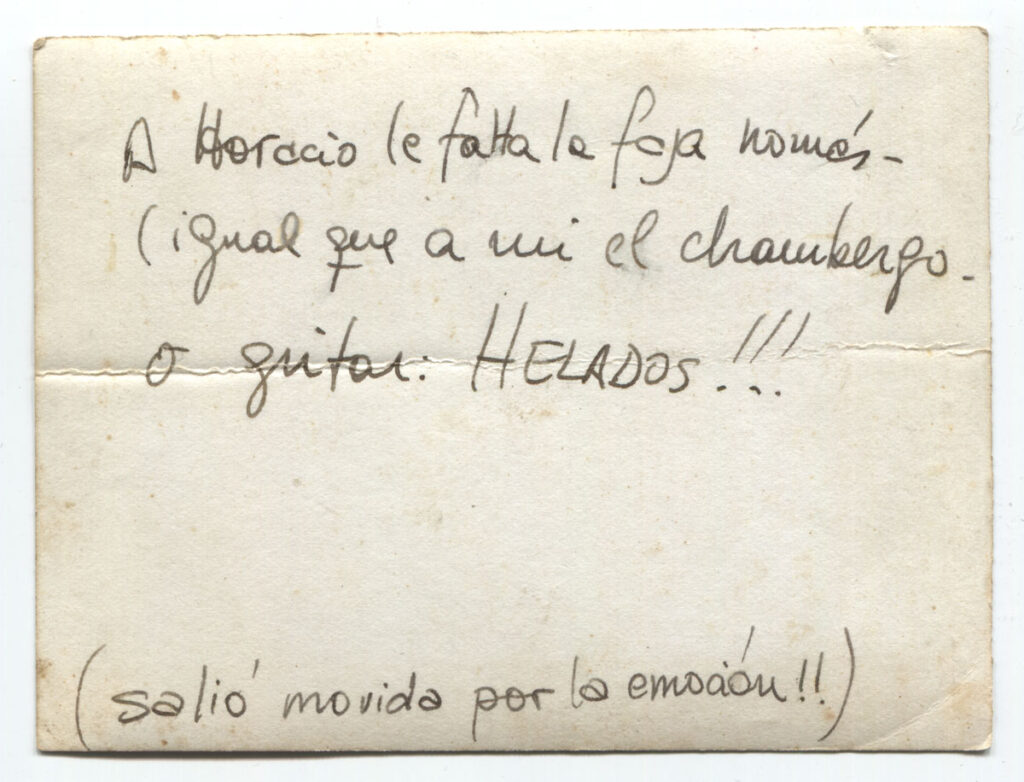 A Horacio le falta la faja nomás-
(igual que a mi el chambergo.
o gritar: HELADOS!!!
(salió movida por la emoción!!)